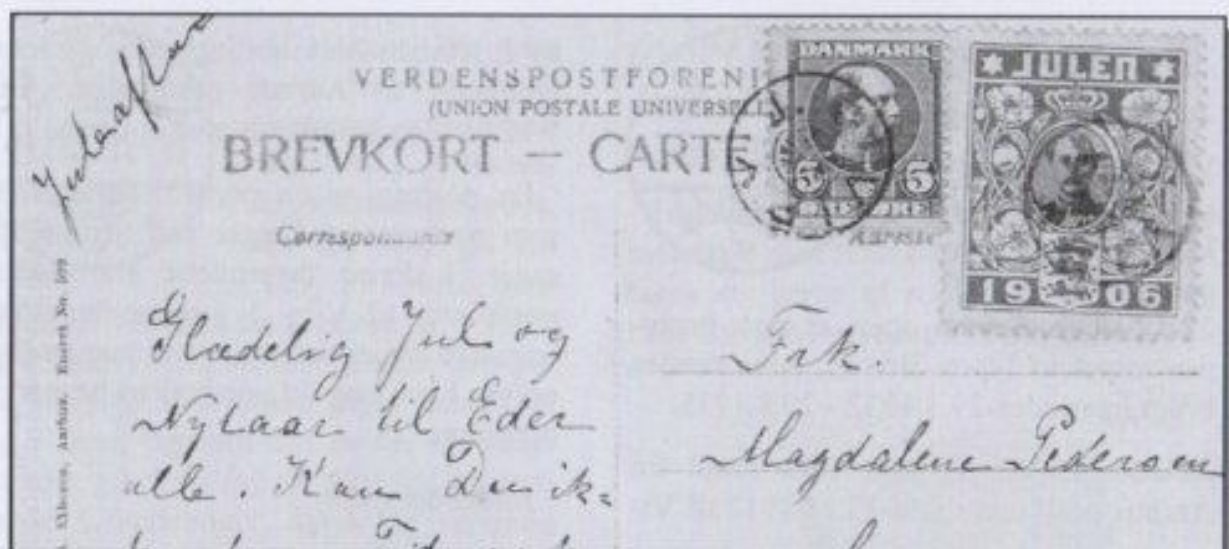 Juleaften
VERDENSPOSTFORENI
(UNION POSTALE UNIVERSELL
BREVKORT — CARTE
DANMARK
5 5
ØRE
JULEN
1906
Aarhus. Eneret No. 199
Glædelig Jul og
Nytaar til Eder
alle. Kan Du ik=
Frk.
Magdalene Pedersen